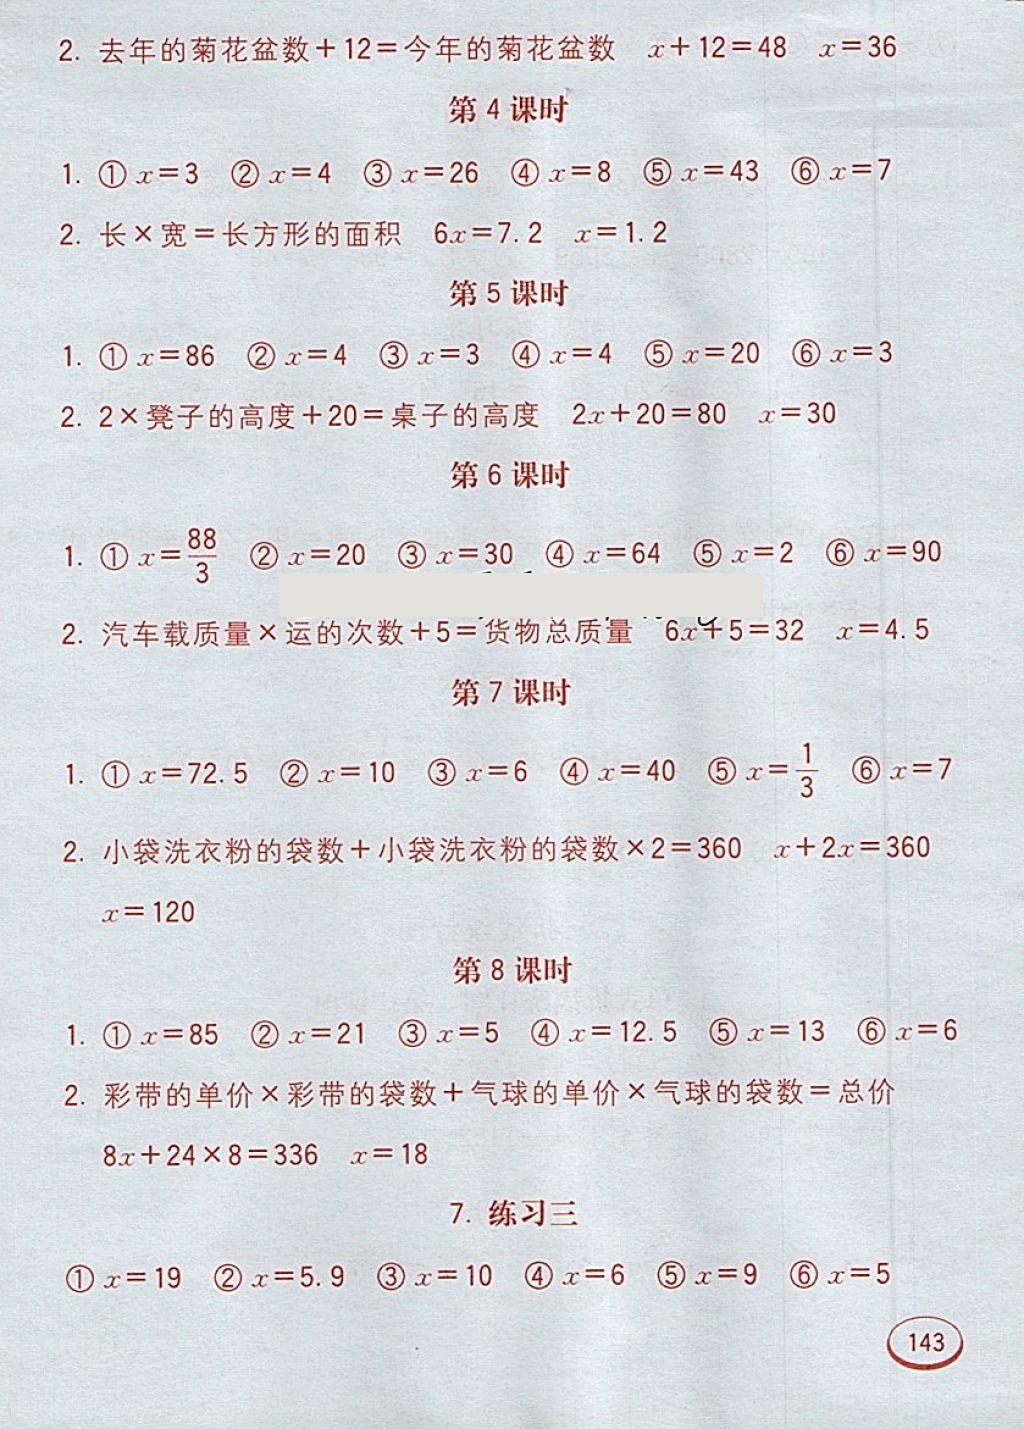 2. 去年的菊花盆数+12=今年的菊花盆数 x+12=48 x=36
第 4 课时
1. ① x=3 ② x=4 ③ x=26 ④ x=8 ⑤ x=43 ⑥ x=7
2. 长×宽=长方形的面积 6x=7.2 x=1.2
第 5 课时
1. ① x=86 ② x=4 ③ x=3 ④ x=4 ⑤ x=20 ⑥ x=3
2. 2×凳子的高度+20=桌子的高度 2x+20=80 x=30
第 6 课时
1. ① x=88/3 ② x=20 ③ x=30 ④ x=64 ⑤ x=2 ⑥ x=90
2. 汽车载质量×运的次数+5=货物总质量 6x+5=32 x=4.5
第 7 课时
1. ① x=72.5 ② x=10 ③ x=6 ④ x=40 ⑤ x=1/3 ⑥ x=7
2. 小袋洗衣粉的袋数+小袋洗衣粉的袋数×2=360 x+2x=360
x=120
第 8 课时
1. ① x=85 ② x=21 ③ x=5 ④ x=12.5 ⑤ x=13 ⑥ x=6
2. 彩带的单价×彩带的袋数+气球的单价×气球的袋数=总价
8x+24×8=336 x=18
7. 练习三
① x=19 ② x=5.9 ③ x=10 ④ x=6 ⑤ x=9 ⑥ x=5
143